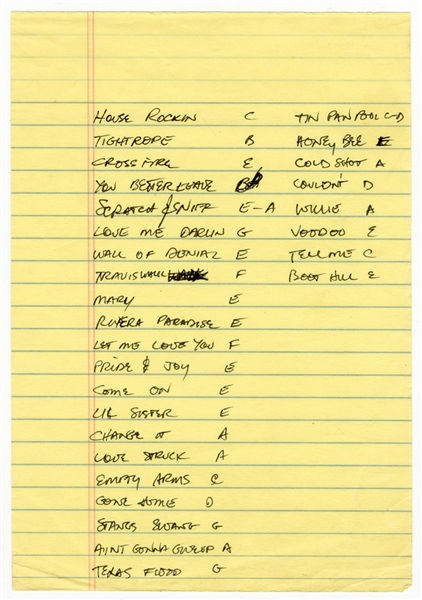 HOUSE ROCKIN C
TIGHTROPE B
CROSSFIRE E
YOU BETTER LEAVE
SCRATCH & SNIFF E-A
LOVE ME DARLIN G
WALL OF DENIAL E
TRAVIS WALK F
MARY E
RIVERA PARADISE E
LET ME LOVE YOU F
PRIDE & JOY E
COME ON E
LIL SISTER E
CHANGE IT A
LOVE STRUCK A
EMPTY ARMS C
GONE HOME D
STANGS SWANG G
AINT GONNA GIVEUP A
TEXAS FLOOD G
TIN PAN
HONEY BEE E
COLD SHOT A
COULDN'T D
WILLIE A
VOODOO E
TELL ME C
BOOT HILL E